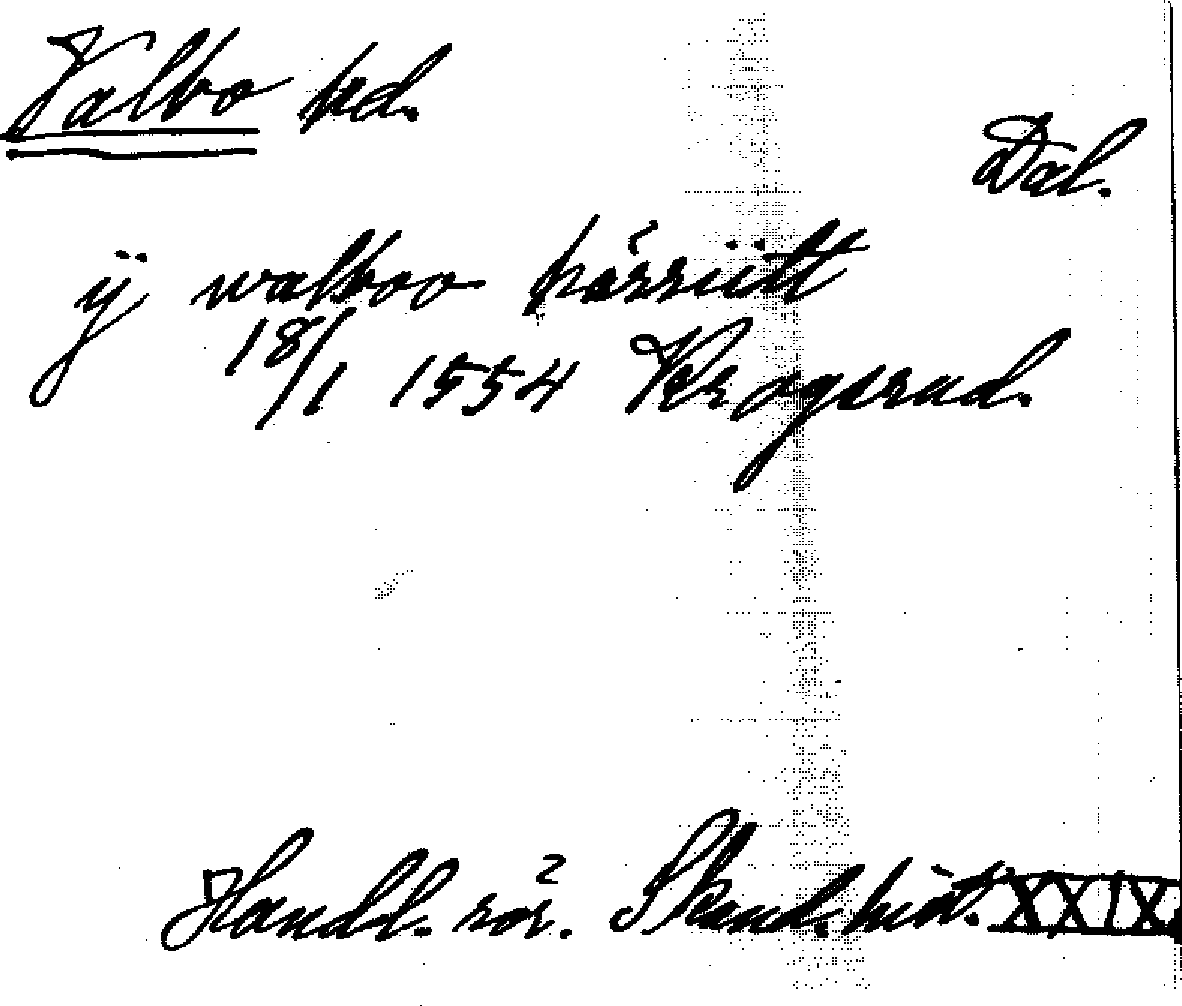 Valbo hd.
Dal.
ÿ walboo härritt
18/1 1554 Krogsrud.
Handl. rör. Skand. hist. XXIX